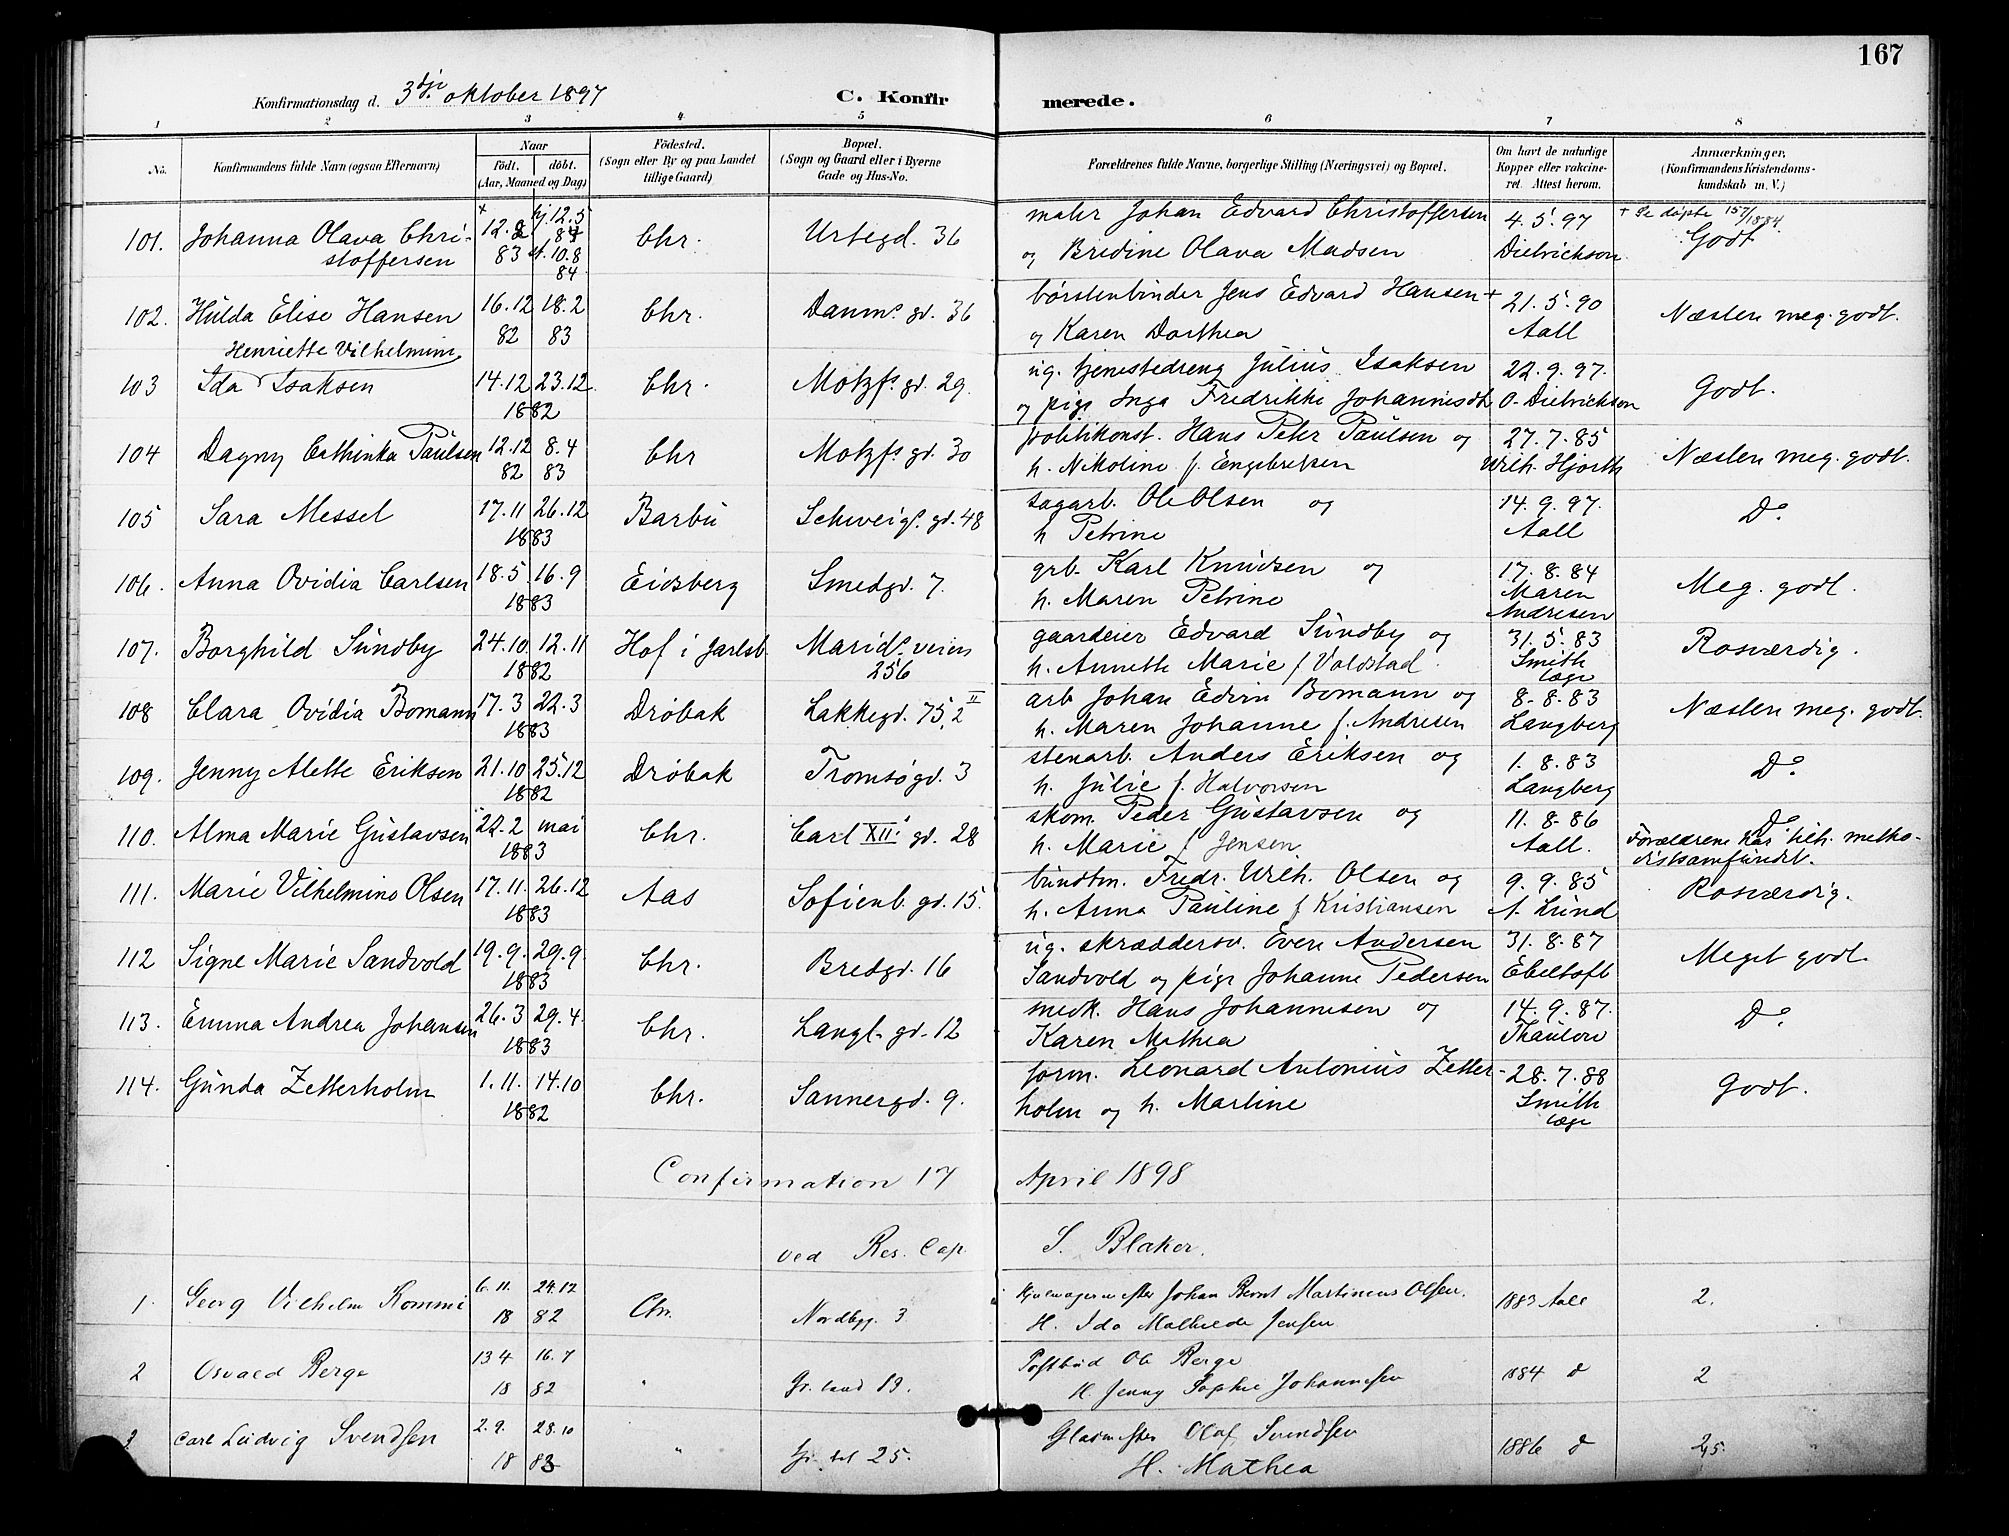 167
Konfirmationsdag d. 3dje oktober 1897 C. Konfirmerede.
1 2 3 4 5 6 7 8
No. Konfirmandens fulde Navn (ogsaa Efternavn) Naar födt. döbt. (Aar, Maaned og Dag) Födested. (Sogn eller By og paa Landet tillige Gaard) Bopæl. (Sogn og Gaard eller i Byerne Gade og Hus-No. Forældrenes fulde Navne, borgerlige Stilling (Næringsvei) og Bopæl. Om havt de naturlige Kopper eller vakcineret. Attest herom. Anmærkninger, (Konfirmandens Kristendomskundskab m. V.)
101. Johanna Olava Chri- + 12.2 hj. 12.5 84 Chr. Urtegd. 36 maler Johan Edvard Christoffersen 4.5.97 + Se døpte 157/1884.
stoffersen 83 st. 10.8 84 og Bredine Olava Madsen Dietrickson Godt
102. Hulda Elise Hansen 16.12 18.2 Chr. Danms. gd. 36 børstenbinder Jens Edvard Hansen + 21.5.90 Næsten meg. godt.
82 83 og Karen Dorthea Aall
Henriette Vilhelmine
103 Ida Isaksen 14.12 23.12. Chr. Motzfs. gd. 29. ug. tjenestedreng Julius Isaksen 22.9.97. Godt.
1882 og pige Inga Fredrikke Johannesdt. O. Dietrickson
104 Dagny Cathinka Paulsen 12.12 8.4 Chr Motzfs gd. 30 politikonst. Hans Peter Paulsen og 27.7.85 Næsten meg. godt.
82 83 h. Nikoline f. Engebretsen Wilh. Hjorth
105 Sara Messel 17.11 26.12 Barbu Schweigs. gd. 48 sagarb. Ole Olsen og 14.9.97. Do
1883 h Petrine Aall
106. Anna Ovidia Carlsen 18.5 16.9 Eidsberg Smedgd. 7. grb. Karl Knudsen og 17.8.84 Meg. godt.
1883 h. Maren Petrine Maren Andresen
107. Borghild Sundby 24.10. 12.11 Hof i Jarlsb. Marids. veien gaardeier Edvard Sundby og 31.5.83 Rosværdig.
1882 256 h. Annette Marie f. Voldstad. Smith læge
108 Clara Ovidia Bomann 17.3 22.3 Drøbak Lakkegd. 75, 2 II arb Johan Edvin Bomann og 8.8.83 Næsten meg. godt.
1883 h. Maren Johanne f. Andresen Langberg
109. Jenny Alette Eriksen 21.10 25.12 Drøbak Tromsøgd. 3 stenarb. Anders Eriksen og 1.8.83 Do.
1882 h. Julie f. Halvorsen Langberg
110. Alma Marie Gustavsen 22.2 mai Chr. Carl XII.s gd. 28 skom. Peder Gustavsen og 11.8.86 Do
1883 h. Marie f Jensen Aall. Forældrene har tilh. metho-
distsamfundet.
111. Marie Vilhelmine Olsen 17.11. 26.12 Aas Sofienb. gd. 15. bundtm. Fredr. Wilh. Olsen og 9.9.85 Rosværdig.
1883 h. Anna Pauline f Kristiansen A. Lund
112 Signe Marie Sandvold 19.9. 29.9. Chr. Bredgd. 16 ug. skræddersv. Even Andersen 31.8.87 Meget godt.
1883 Sandvold og pige Johanne Pedersen Ebeltoft
113. Emma Andrea Johansen 26.3 29.4. Chr. Langl. gd. 12 mek. Hans Johannesen og 14.9.87. Do
1883 Karen Mathea Thaulow
114. Gunda Zetterholm 1.11. 14.10 Chr. Sannergd. 9. form. Leonard Antonius Zetter- 28.7.88 Godt.
1882 holm og h. Martine Smith læge
Confirmation 17 April 1898
ved Res. Cap. S. Blaker.
1. Georg Vilhelm Rommi 6.11. 24.12 Chr. Nordbyg. 3 Johan Bernt Martinius Olsen. 1883 Aall 2.
18 82 H. Ida Mathilde Jensen
2 Osvald Berge 13 4 16.7 " Gr. land 19. Postbud Ole Berge 1884 d 2
18 82 H. Jenny Sophie Johannesen
3 Carl Ludvig Svendsen 2.9. 28.10 " 25. Glasmester Olaf Svendsen 1886 d 2,5.
18 83 H. Mathea